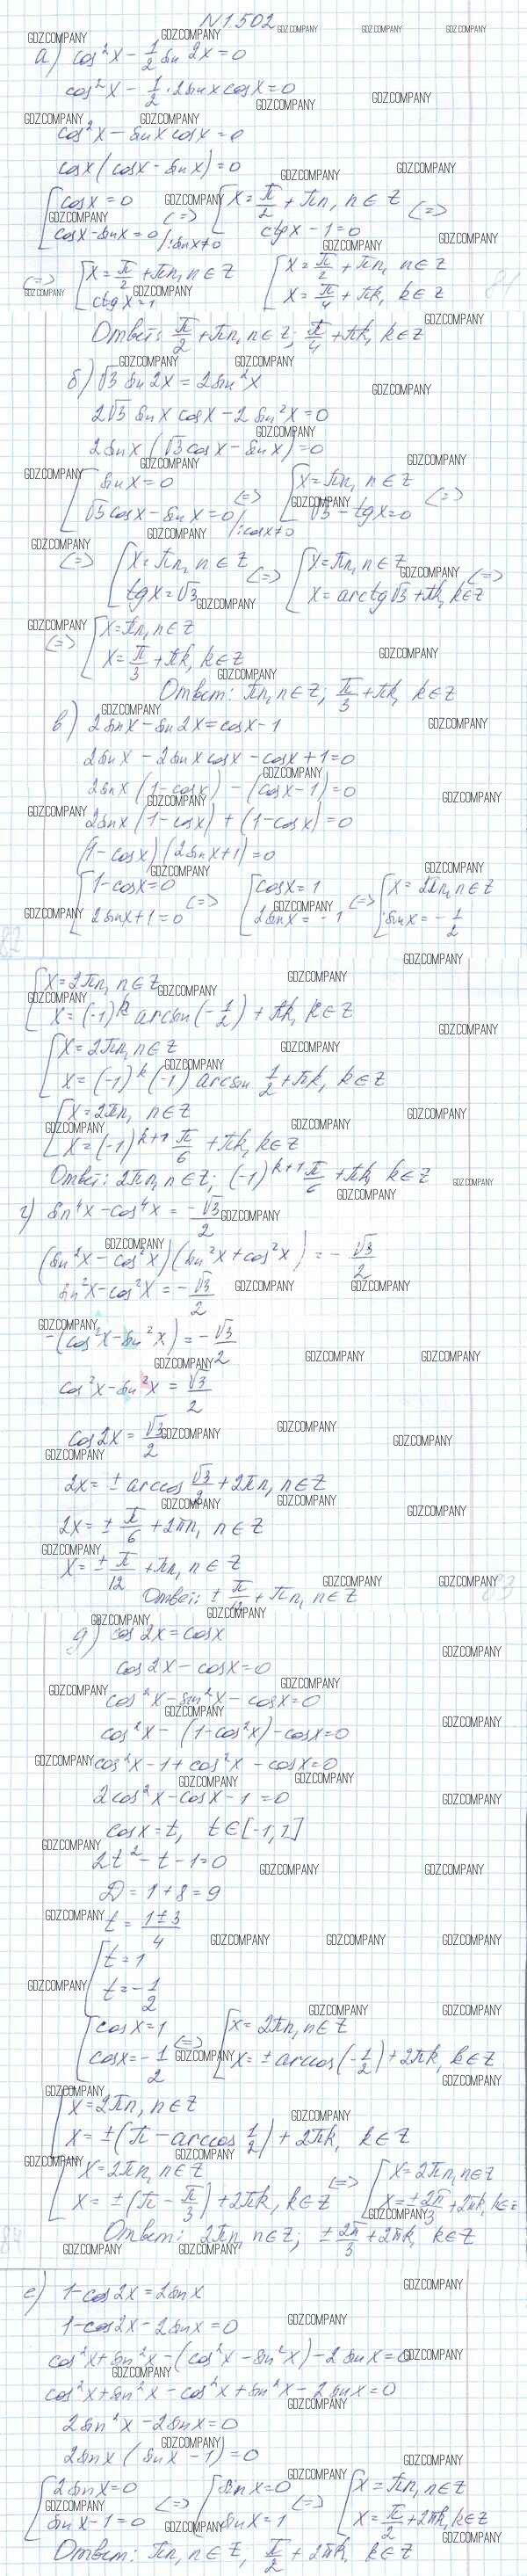 N1502
а) cos²x − 1/2 sin 2x = 0
cos²x − 1/2 · 2sinx cosx = 0
cos²x − sinx cosx = 0
cosx (cosx − sinx) = 0
[cosx = 0 [x = π/2 + πn, n ∈ Z
cosx − sinx = 0 /:sinx≠0 <=> ctgx − 1 = 0 <=>
<=> [x = π/2 + πn, n ∈ Z [x = π/2 + πn, n ∈ Z
ctgx = 1 x = π/4 + πk, k ∈ Z
Ответ: π/2 + πn, n ∈ Z; π/4 + πk, k ∈ Z
б) √3 sin 2x = 2sin²x
2√3 sinx cosx − 2sin²x = 0
2sinx (√3cosx − sinx) = 0
[sinx = 0 <=> [x = πn, n ∈ Z <=>
√3cosx − sinx = 0 /:cosx≠0 √3 − tgx = 0
<=> [x = πn, n ∈ Z <=> [x = πn, n ∈ Z <=>
tgx = √3 x = arctg√3 + πk, k ∈ Z
<=> [x = πn, n ∈ Z
x = π/3 + πk, k ∈ Z
Ответ: πn, n ∈ Z; π/3 + πk, k ∈ Z
в) 2sinx − sin2x = cosx − 1
2sinx − 2sinx cosx − cosx + 1 = 0
2sinx (1 − cosx) − (cosx − 1) = 0
2sinx (1 − cosx) + (1 − cosx) = 0
(1 − cosx)(2sinx + 1) = 0
[1 − cosx = 0 <=> [cosx = 1 <=> [x = 2πn, n ∈ Z
2sinx + 1 = 0 2sinx = −1 sinx = −1/2
[x = 2πn, n ∈ Z
x = (−1)^k arcsin(−1/2) + πk, k ∈ Z
[x = 2πn, n ∈ Z
x = (−1)^k (−1) arcsin 1/2 + πk, k ∈ Z
[x = 2πn, n ∈ Z
x = (−1)^(k+1) π/6 + πk, k ∈ Z
Ответ: 2πn, n ∈ Z; (−1)^(k+1) π/6 + πk, k ∈ Z
г) sin⁴x − cos⁴x = −√3/2
(sin²x − cos²x)(sin²x + cos²x) = −√3/2
sin²x − cos²x = −√3/2
−(cos²x − sin²x) = −√3/2
cos²x − sin²x = √3/2
cos2x = √3/2
2x = ± arccos √3/2 + 2πn, n ∈ Z
2x = ± π/6 + 2πn, n ∈ Z
x = ± π/12 + πn, n ∈ Z
Ответ: ± π/12 + πn, n ∈ Z
д) cos2x = cosx
cos2x − cosx = 0
cos²x − sin²x − cosx = 0
cos²x − (1 − cos²x) − cosx = 0
cos²x − 1 + cos²x − cosx = 0
2cos²x − cosx − 1 = 0
cosx = t, t ∈ [−1, 1]
2t² − t − 1 = 0
D = 1 + 8 = 9
t = (1 ± 3)/4
[t = 1
t = −1/2
[cosx = 1 <=> [x = 2πn, n ∈ Z
cosx = −1/2 x = ± arccos(−1/2) + 2πk, k ∈ Z
[x = 2πn, n ∈ Z
x = ±(π − arccos 1/2) + 2πk, k ∈ Z
[x = 2πn, n ∈ Z <=> [x = 2πn, n ∈ Z
x = ±(π − π/3) + 2πk, k ∈ Z x = ± 2π/3 + 2πk, k ∈ Z
Ответ: 2πn, n ∈ Z; ± 2π/3 + 2πk, k ∈ Z
е) 1 − cos2x = 2sinx
1 − cos2x − 2sinx = 0
cos²x + sin²x − (cos²x − sin²x) − 2sinx = 0
cos²x + sin²x − cos²x + sin²x − 2sinx = 0
2sin²x − 2sinx = 0
2sinx (sinx − 1) = 0
[2sinx = 0 <=> [sinx = 0 <=> [x = πn, n ∈ Z
sinx − 1 = 0 sinx = 1 x = π/2 + 2πk, k ∈ Z
Ответ: πn, n ∈ Z, π/2 + 2πk, k ∈ Z
GDZ.COMPANY